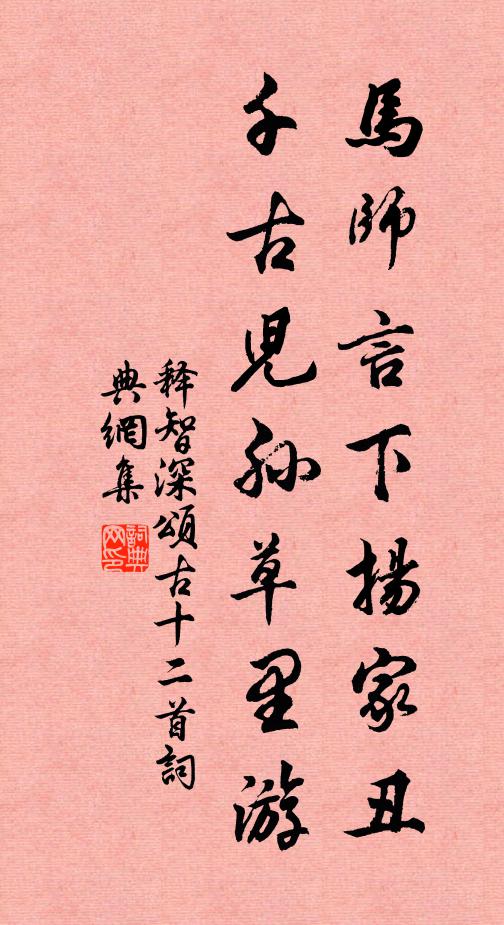 馬師言下揚家丑
千古児孙草里游
释智深頌古十二首詞
典網集
詞典網印